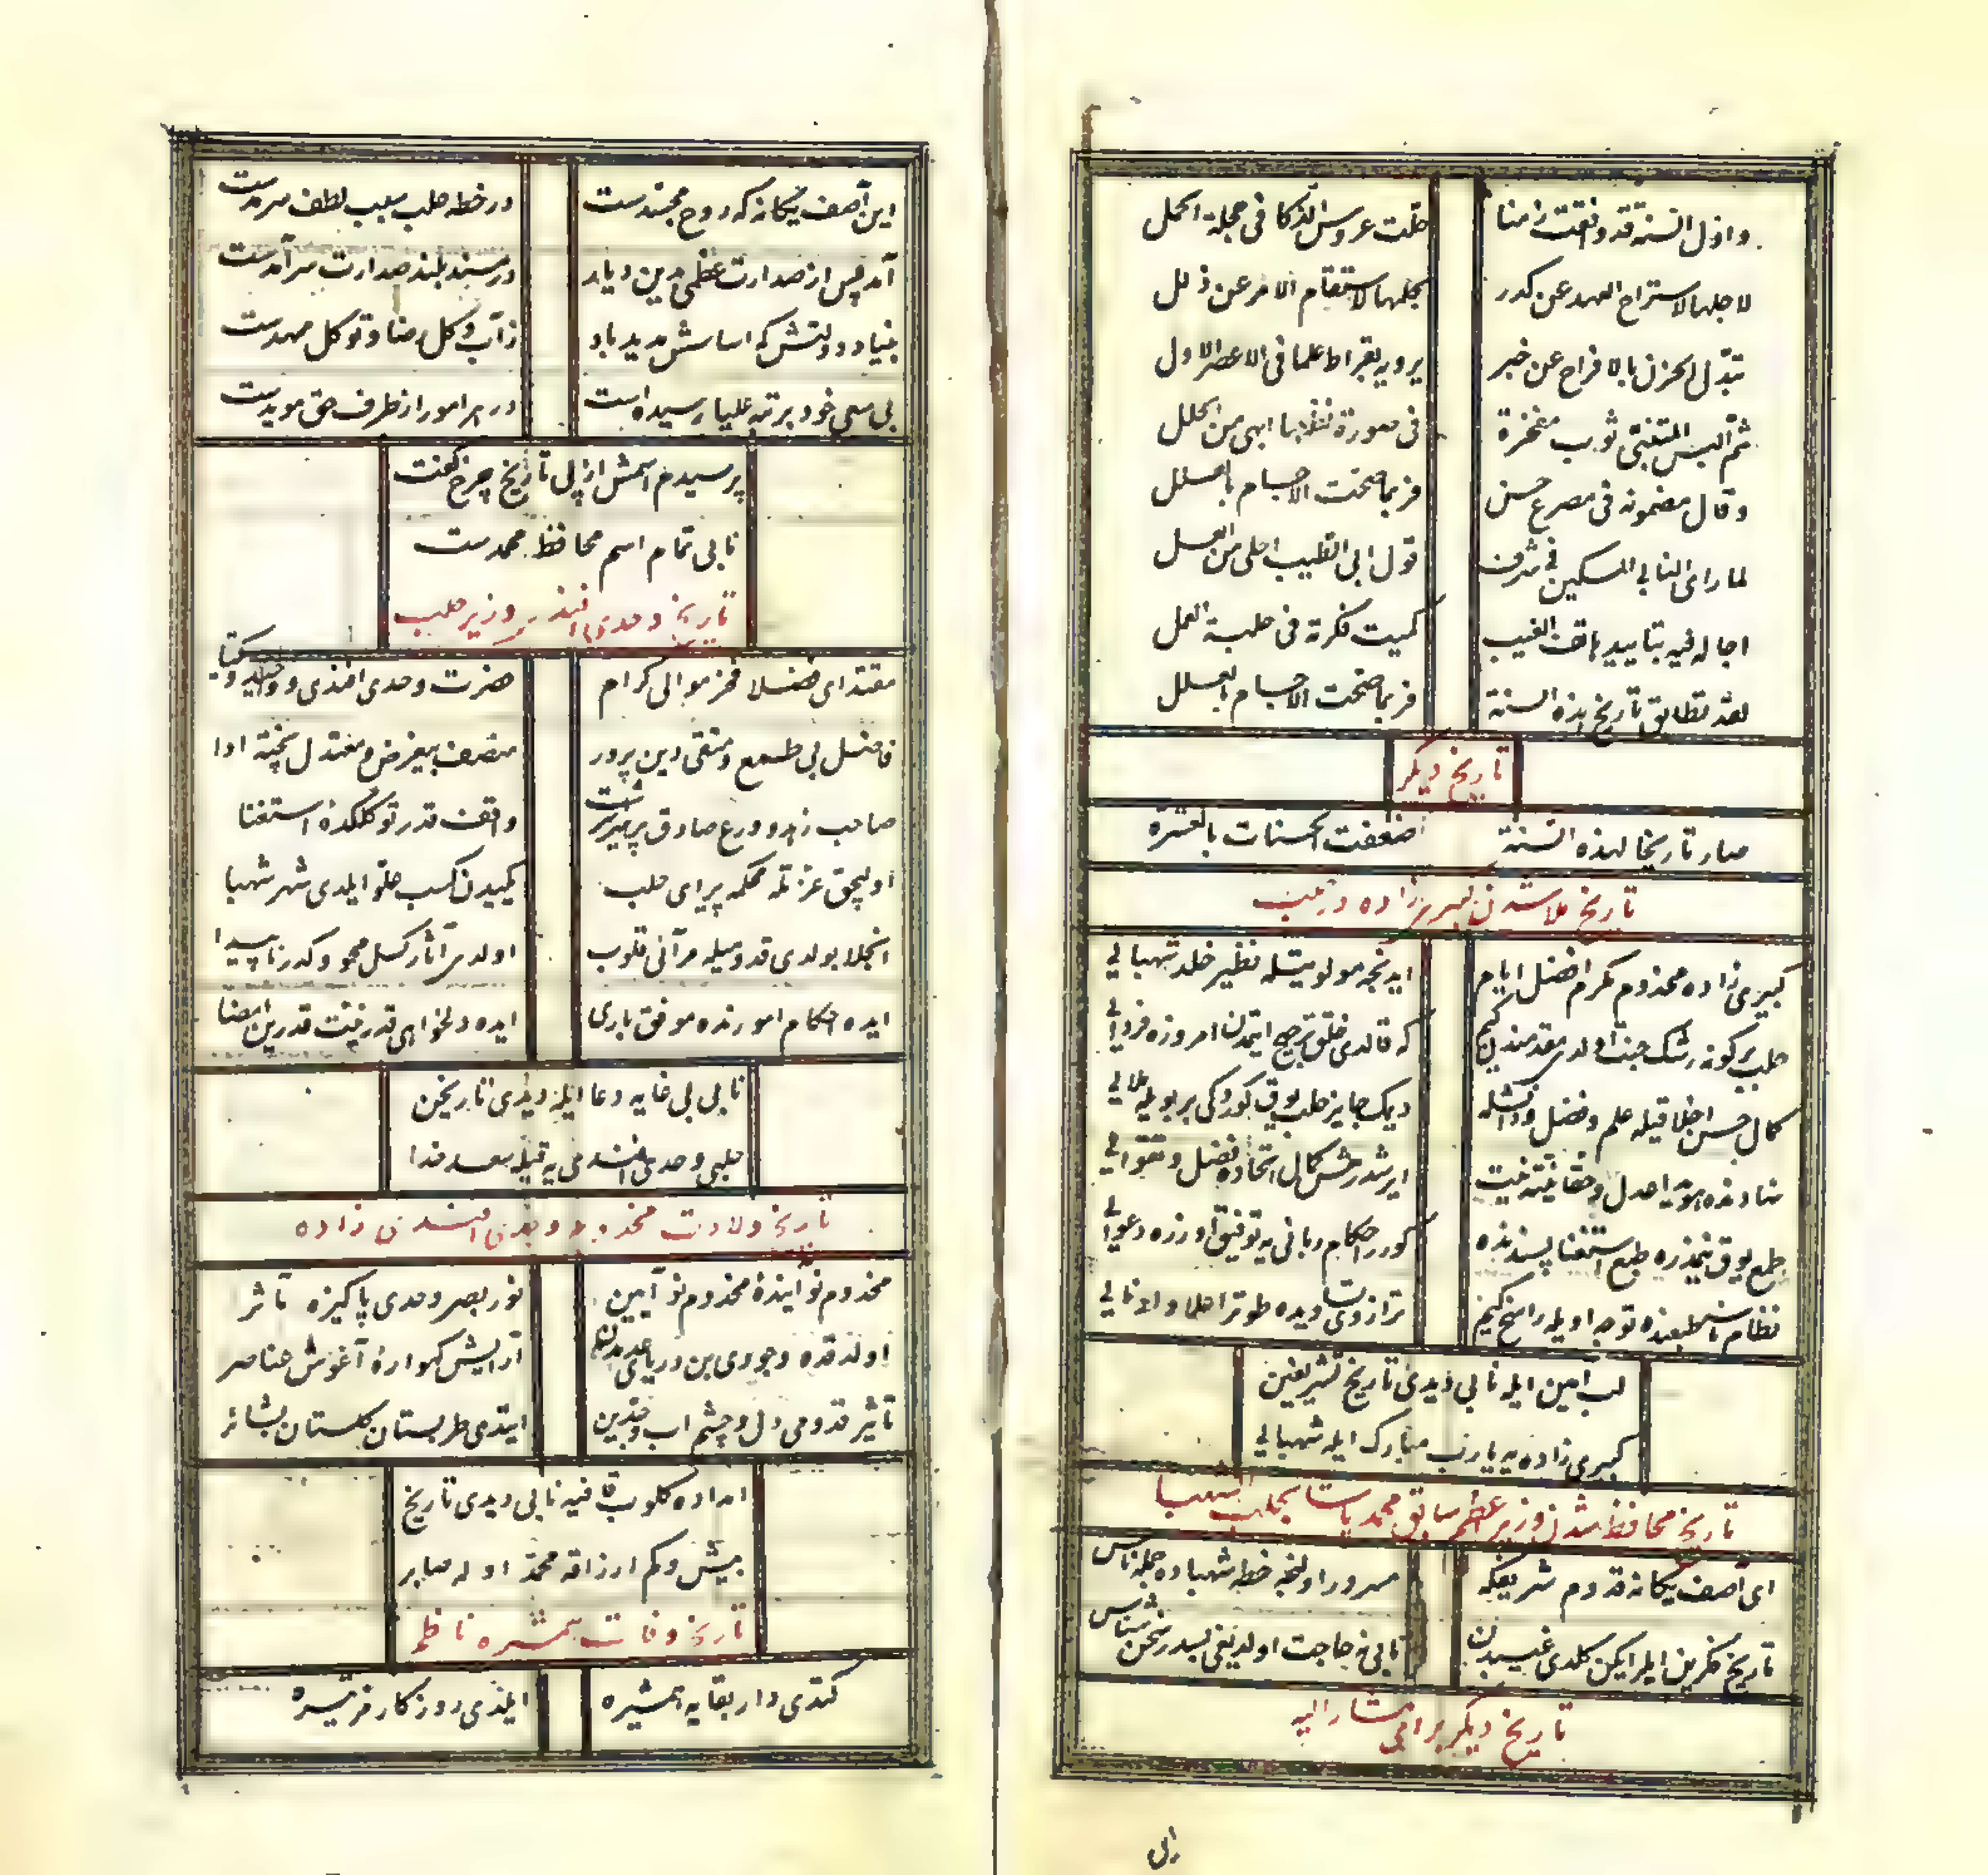 و اول السنة قد وافقت زمنا
حلت عروس الذكا فى حجلة الحمل
لاجلها لاستراح العهد عن كدر
بجلها لاستقام الامر عن ذلل
تبدل الحزن بالافراح عن خبر
يرويه بقراط علما فى الاعصر الاول
ثم البس المتنبى ثوب مفخرة
فى صورة نظمها ابهى من الحلل
و قال مضمونه فى مصرع حسن
فربما صحت الاجسام بالعلل
لما راى النابى المسكين فى شرف
قول ابى الطيب احلى من العسل
اجاله فيه بتاييد هاتف الغيب
كميت فكرة فى حلبة العمل
لقد تطابق تاريخ هذه السنة
فربما صحت الاجسام بالعلل
تاريخ ديكر
صار تاريخا لهذه السنة
اضعفت الحسنات بالعشرة
تاريخ ملا شدن كبيرى زاده در حلب
كبيرى زاده مخدوم مكرم افضل ايام
ايدنجه مولويتله نظير خلد شهبايى
حلب بر كونه رشك جنت اولدى مقدمندن كيم
كه قالدى خلق ترجيح ايتمدن امروزه فردايى
كمال حسن اخلاقيله علم و فضل و دانشله
ديمك جايز حلب يوق كوردكى بر بويله ملايى
نهادنده هويدا عدل و حقانيت نيت
ايرشدرمش كمال اتحاده فضل و تقوايى
طمع يوق نيتنده طبع استغنا پسندنده
كورر احكام ربانى يه توفيق اوزره دعوايى
نظام ناس طبعنده توجه اويله راسخ كيم
ترازوى ديده طوتر اعلا و ادنايى
لب امين ايله نابى ديدى تاريخ تشريفين
كبيرى زاده يه يا رب مبارك ايله شهبايى
تاريخ محافظ شدن وزير اعظم سابق محمد پاشا بحلب الشهبا
اى آصف يكانه قدوم شريفكه
مسرور اولنجه خطه شهباده جمله ناس
تاريخ فكرين ايلر ايكن كلدى غيبدن
نابى نه حاجت اولديغى بسدر سخن شناس
تاريخ ديكر براى مشار اليه
اين آصف يكانه كه روح مجسدست
در خطه حلب سبب لطف سرمدست
آمد پس از صدارت عظمى درين ديار
در مسند بلند صدارت سرآمدست
بنياد دولتش كه اساسش مديد باد
ز آب و كل رضا و توكل ممهدست
بى سعى خود برتبه عليا رسيده است
در هر امور از طرف حق مويدست
پرسيدم اسمش از پى تاريخ چرخ كفت
نابى تمام اسم محافظ محمدست
تاريخ وحدى افندى وزير حلب
مقتداى فضلا فخر موالى كرام
حضرت وحدى افندى و وحيد و يكتا
فاضل بى طمع و متقى دين پرور
منصف بيغرض و معتدل پخته ادا
صاحب زهد و ورع صادق پرهيز سرشت
واقف قدر توكلكده استغنا
اوليجق عزتله محكمه پيراى حلب
يكيدن كسب علو ايلدى شهر شهبا
انجلا بولدى قدوميله مرآئى قلوب
اولدى آثار كسل محو و كدر ناپيدا
ايده احكام امورنده موفق بارى
ايده دلخواهى قدر نيت قدرين امضا
نابى بى غايه دعا ايله ديدى تاريخن
حلبى وحدى افندى يه قيله سعد خدا
تاريخ ولادت مخدوم وحدى افندى زاده
مخدوم نو آينده مخدوم نو آيين
نور بصر وحدى پاكيزه تأثر
اولدقده وجودى بن درياى عدمدن
آرايش كهواره آغوش عناصر
تاثير قدومى دل و چشم اب و جدين
ايتدى طربستان كلستان بشائر
امداده كلوب قافيه نابى ديدى تاريخ
بيش و كم ارزاقه محمد اوله صابر
تاريخ وفات همشيره ناظم
كتدى دار بقايه همشيره
ايلدى روزكار فرتيره